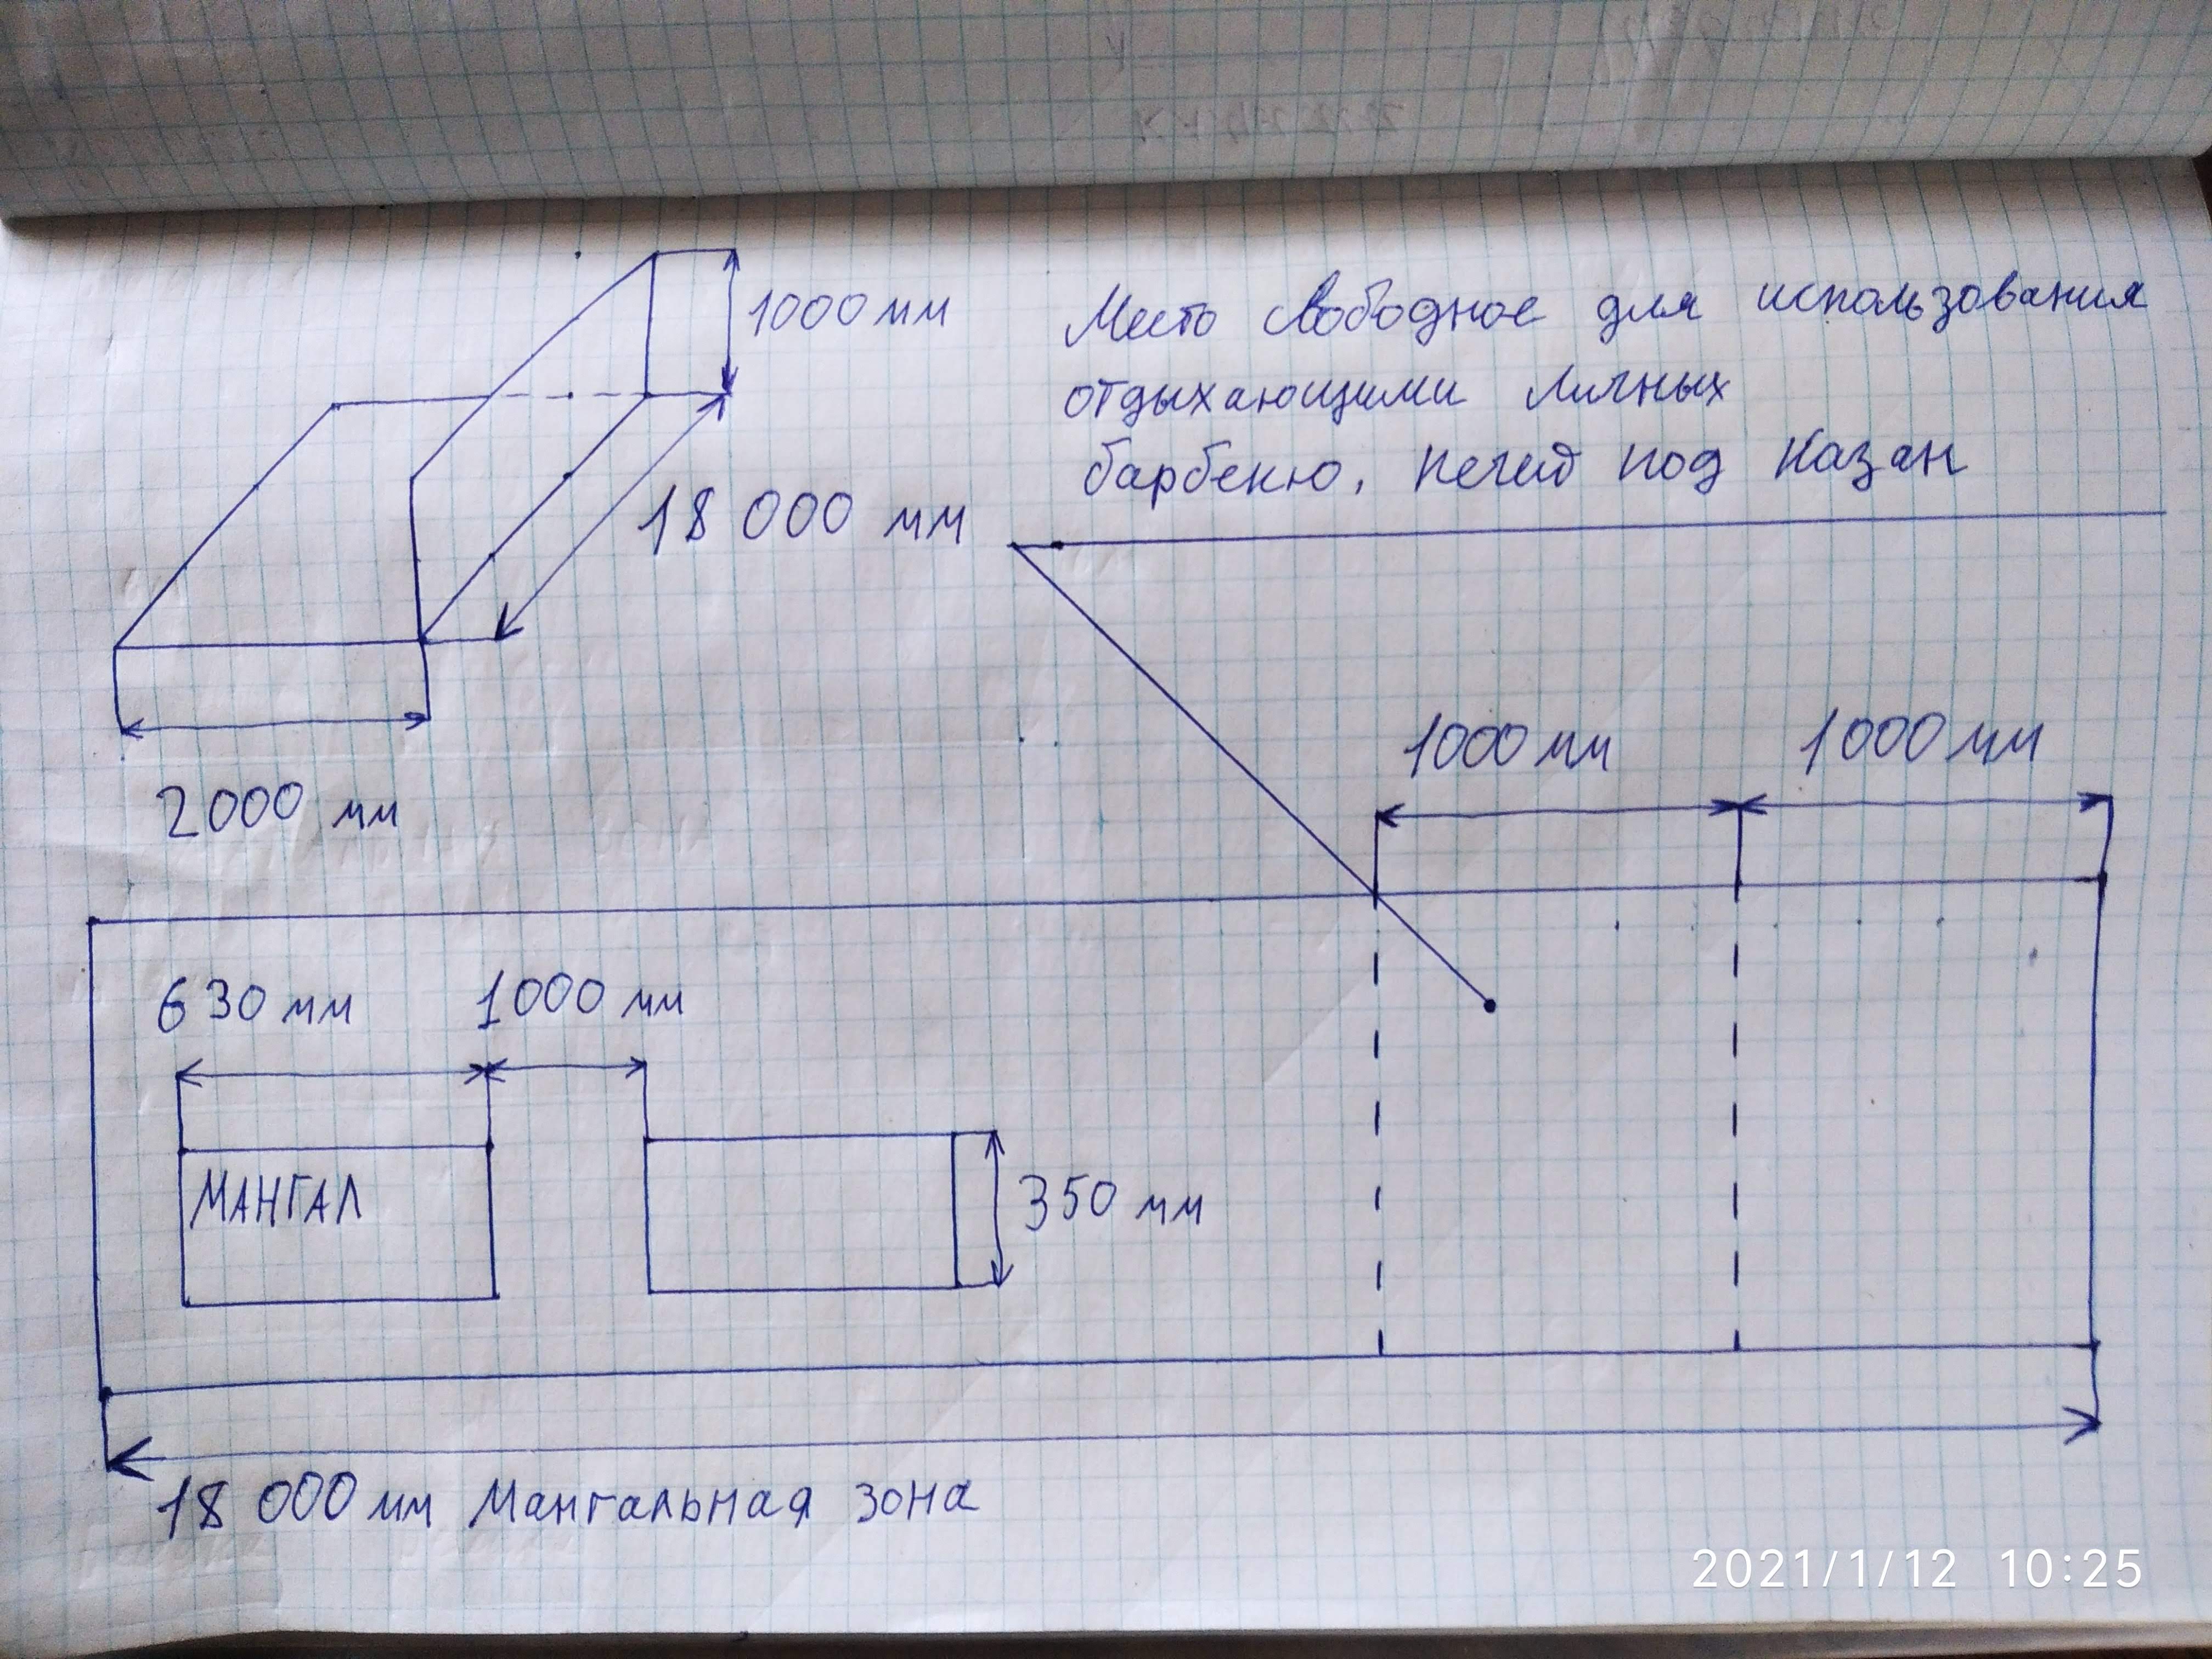 1000 мм
Место свободное для использования
отдыхающими личных
барбекю, печей под казан
18 000 мм
2000 мм
1000 мм 1000 мм
630 мм 1000 мм
МАНГАЛ
350 мм
18 000 мм Мангальная зона
2021/1/12 10:25